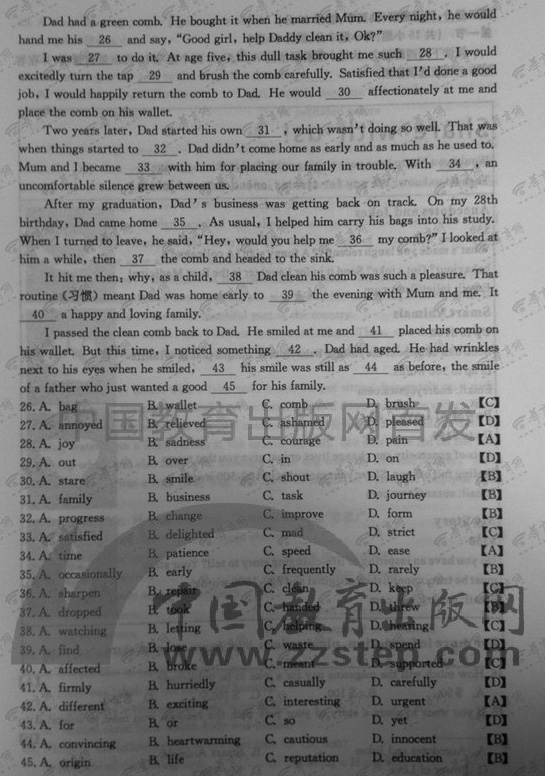 Dad had a green comb. He bought it when he married Mum. Every night, he would
hand me his 26 and say, "Good girl, help Daddy clean it, Ok?"
I was 27 to do it. At age five, this dull task brought me such 28 . I would
excitedly turn the tap 29 and brush the comb carefully. Satisfied that I'd done a good
job, I would happily return the comb to Dad. He would 30 affectionately at me and
place the comb on his wallet.
Two years later, Dad started his own 31 , which wasn't doing so well. That was
when things started to 32 . Dad didn't come home as early and as much as he used to.
Mum and I became 33 with him for placing our family in trouble. With 34 , an
uncomfortable silence grew between us.
After my graduation, Dad's business was getting back on track. On my 28th
birthday, Dad came home 35 . As usual, I helped him carry his bags into his study.
When I turned to leave, he said, "Hey, would you help me 36 my comb?" I looked at
him a while, then 37 the comb and headed to the sink.
It hit me then: why, as a child, 38 Dad clean his comb was such a pleasure. That
routine (习惯) meant Dad was home early to 39 the evening with Mum and me. It
40 a happy and loving family.
I passed the clean comb back to Dad. He smiled at me and 41 placed his comb on
his wallet. But this time, I noticed something 42 . Dad had aged. He had wrinkles
next to his eyes when he smiled, 43 his smile was still as 44 as before, the smile
of a father who just wanted a good 45 for his family.
26. A. bag B. wallet C. comb D. brush 【C】
27. A. annoyed B. relieved C. ashamed D. pleased 【D】
28. A. joy B. sadness C. courage D. pain 【A】
29. A. out B. over C. in D. on 【D】
30. A. stare B. smile C. shout D. laugh 【B】
31. A. family B. business C. task D. journey 【B】
32. A. progress B. change C. improve D. form 【B】
33. A. satisfied B. delighted C. mad D. strict 【C】
34. A. time B. patience C. speed D. ease 【A】
35. A. occasionally B. early C. frequently D. rarely 【B】
36. A. sharpen B. repair C. clean D. keep 【C】
37. A. dropped B. took C. handed D. threw 【B】
38. A. watching B. letting C. helping D. hearing 【C】
39. A. find B. lose C. waste D. spend 【D】
40. A. affected B. broke C. meant D. supported 【C】
41. A. firmly B. hurriedly C. casually D. carefully 【D】
42. A. different B. exciting C. interesting D. urgent 【A】
43. A. for B. or C. so D. yet 【D】
44. A. convincing B. heartwarming C. cautious D. innocent 【B】
45. A. origin B. life C. reputation D. education 【B】
中国教育出版网首发
中国教育出版网
www.zzstep.com